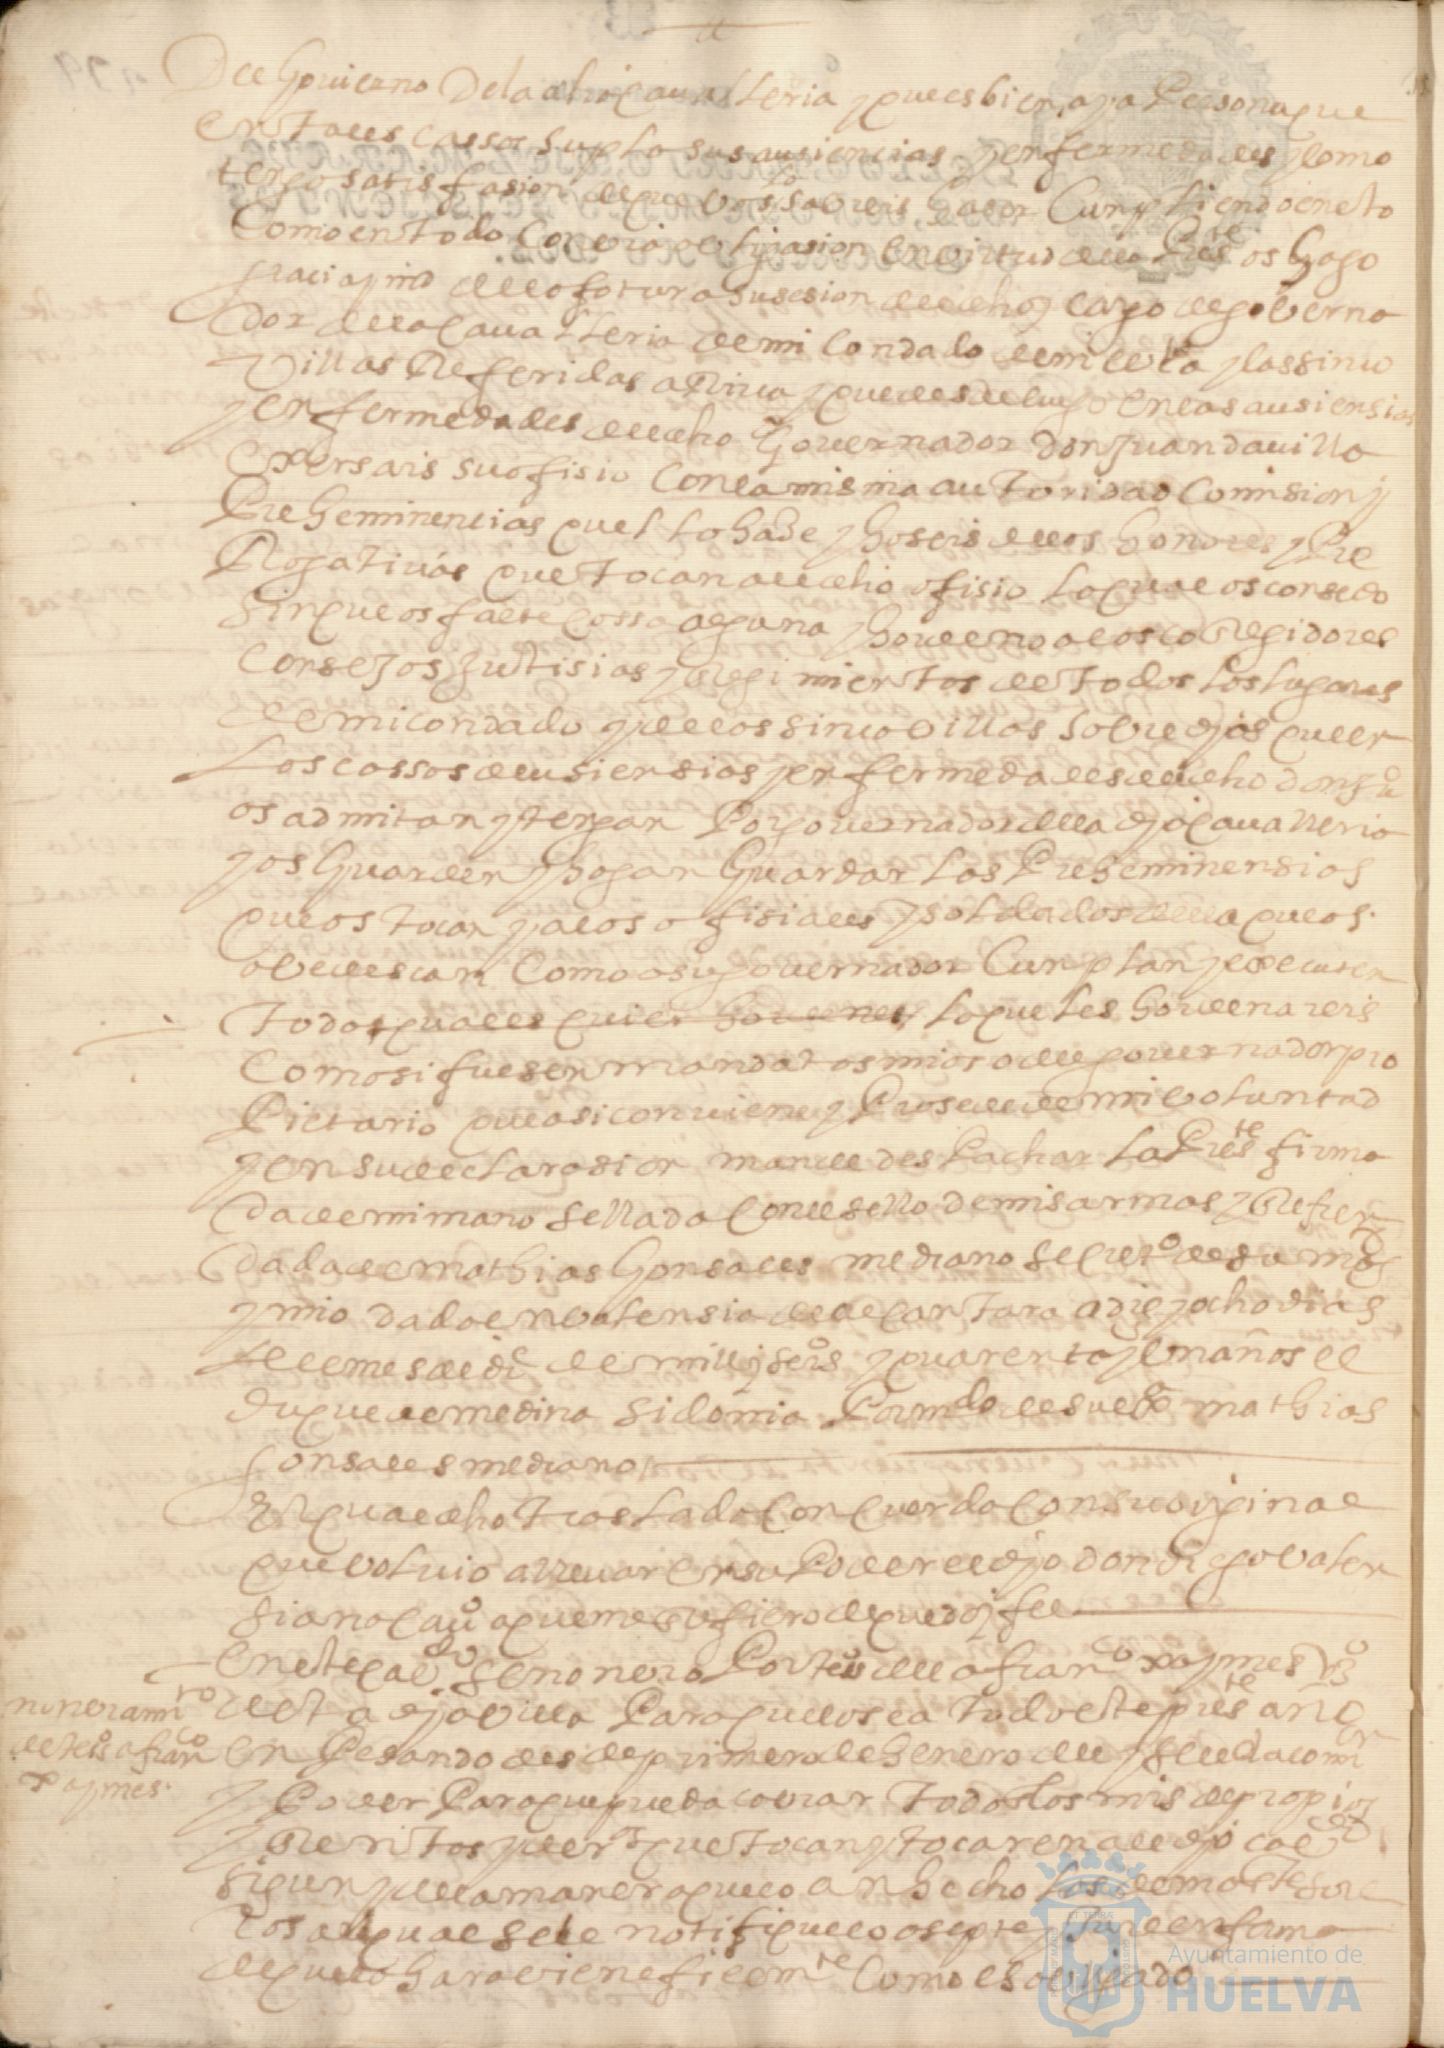 del govierno de la dha cavalleria y que es bien aya Persona que
en tales cassos supla sus ausiencias y enfermedades y como
tengo satisfasion de que vos lo sabreis haser Cunpliendo en esto
Como en todo Con la obligasion En virtud de la Preste os hago
grasia y md de la fotura susesion del dho cargo de goberna
dor de la Cavalleria de mi Condado de niebla y las sinco
Villas Referidas arriva y que desde luego en las ausiensias
y enfermedades del dho Governador don Juan davilla
exersais su ofisio Con la misma autoridad Comision y
Preheminencias quel lo hase y goseis de los honores y Pre
Rogativas que tocan al dho ofisio lo qual os consedo
sin que os falte Cossa alguna y hordeno a los coRegidores
Consejos Justisias y Regimientos de todos los lugares
de mi condado y de las sinco villas sobre djas que en
Los cassos de ausiensias y enfermedades del dho don Juº
os admitan y tengan Por governador de la dja Cavalleria
y os guarden y hagan guardar las Preheminensias
que os tocan y a los ofisiales y soldados della que os
obedescan Como a su governador Cunplan y executen
todas quales quier hordenes lo que les hordenareis
Como si fuesen mandatos mios o del governador pro
Pietario que asi conviene y Prosede de mi voluntad
y en su declarasion mande despachar la Preste firma
da de mi mano sellada Con el sello de mis armas y Refren
dada de mathias Gonsales mediano secretº de su magd
y mio dada en valensia de alcantara a diez y ocho dias
del mes de diº de mill y seisº y quarenta y un años el
duque de medina sidonia Por mdo del duq mi sr mathias
Gonsales mediano
El qual dho traslado Concuerda Con su original
que volvio a llevar En su Poder el djo don diego valen
siano Cavº a que me Refiero de que doy fee
En este cavdo se nonbro Por tesº de la a franco xaymes vº
desta dja villa Para que lo sea todo este preste año
en Pesando desde primero de henero del y se le da comion
y Poder Para que pueda cobrar todos los mrs de propios
y Rentos y dents que tocan y tocaren al djo cavdo
sigun y de la manera que lo an hecho los demas teso
ros al qual se le notifique lo asepte y jure en forma
de que lo hara bien e fielmte Como es obligado
nonbrammto
de tesº a franco
xaymes.
Ayuntamiento de
HUELVA